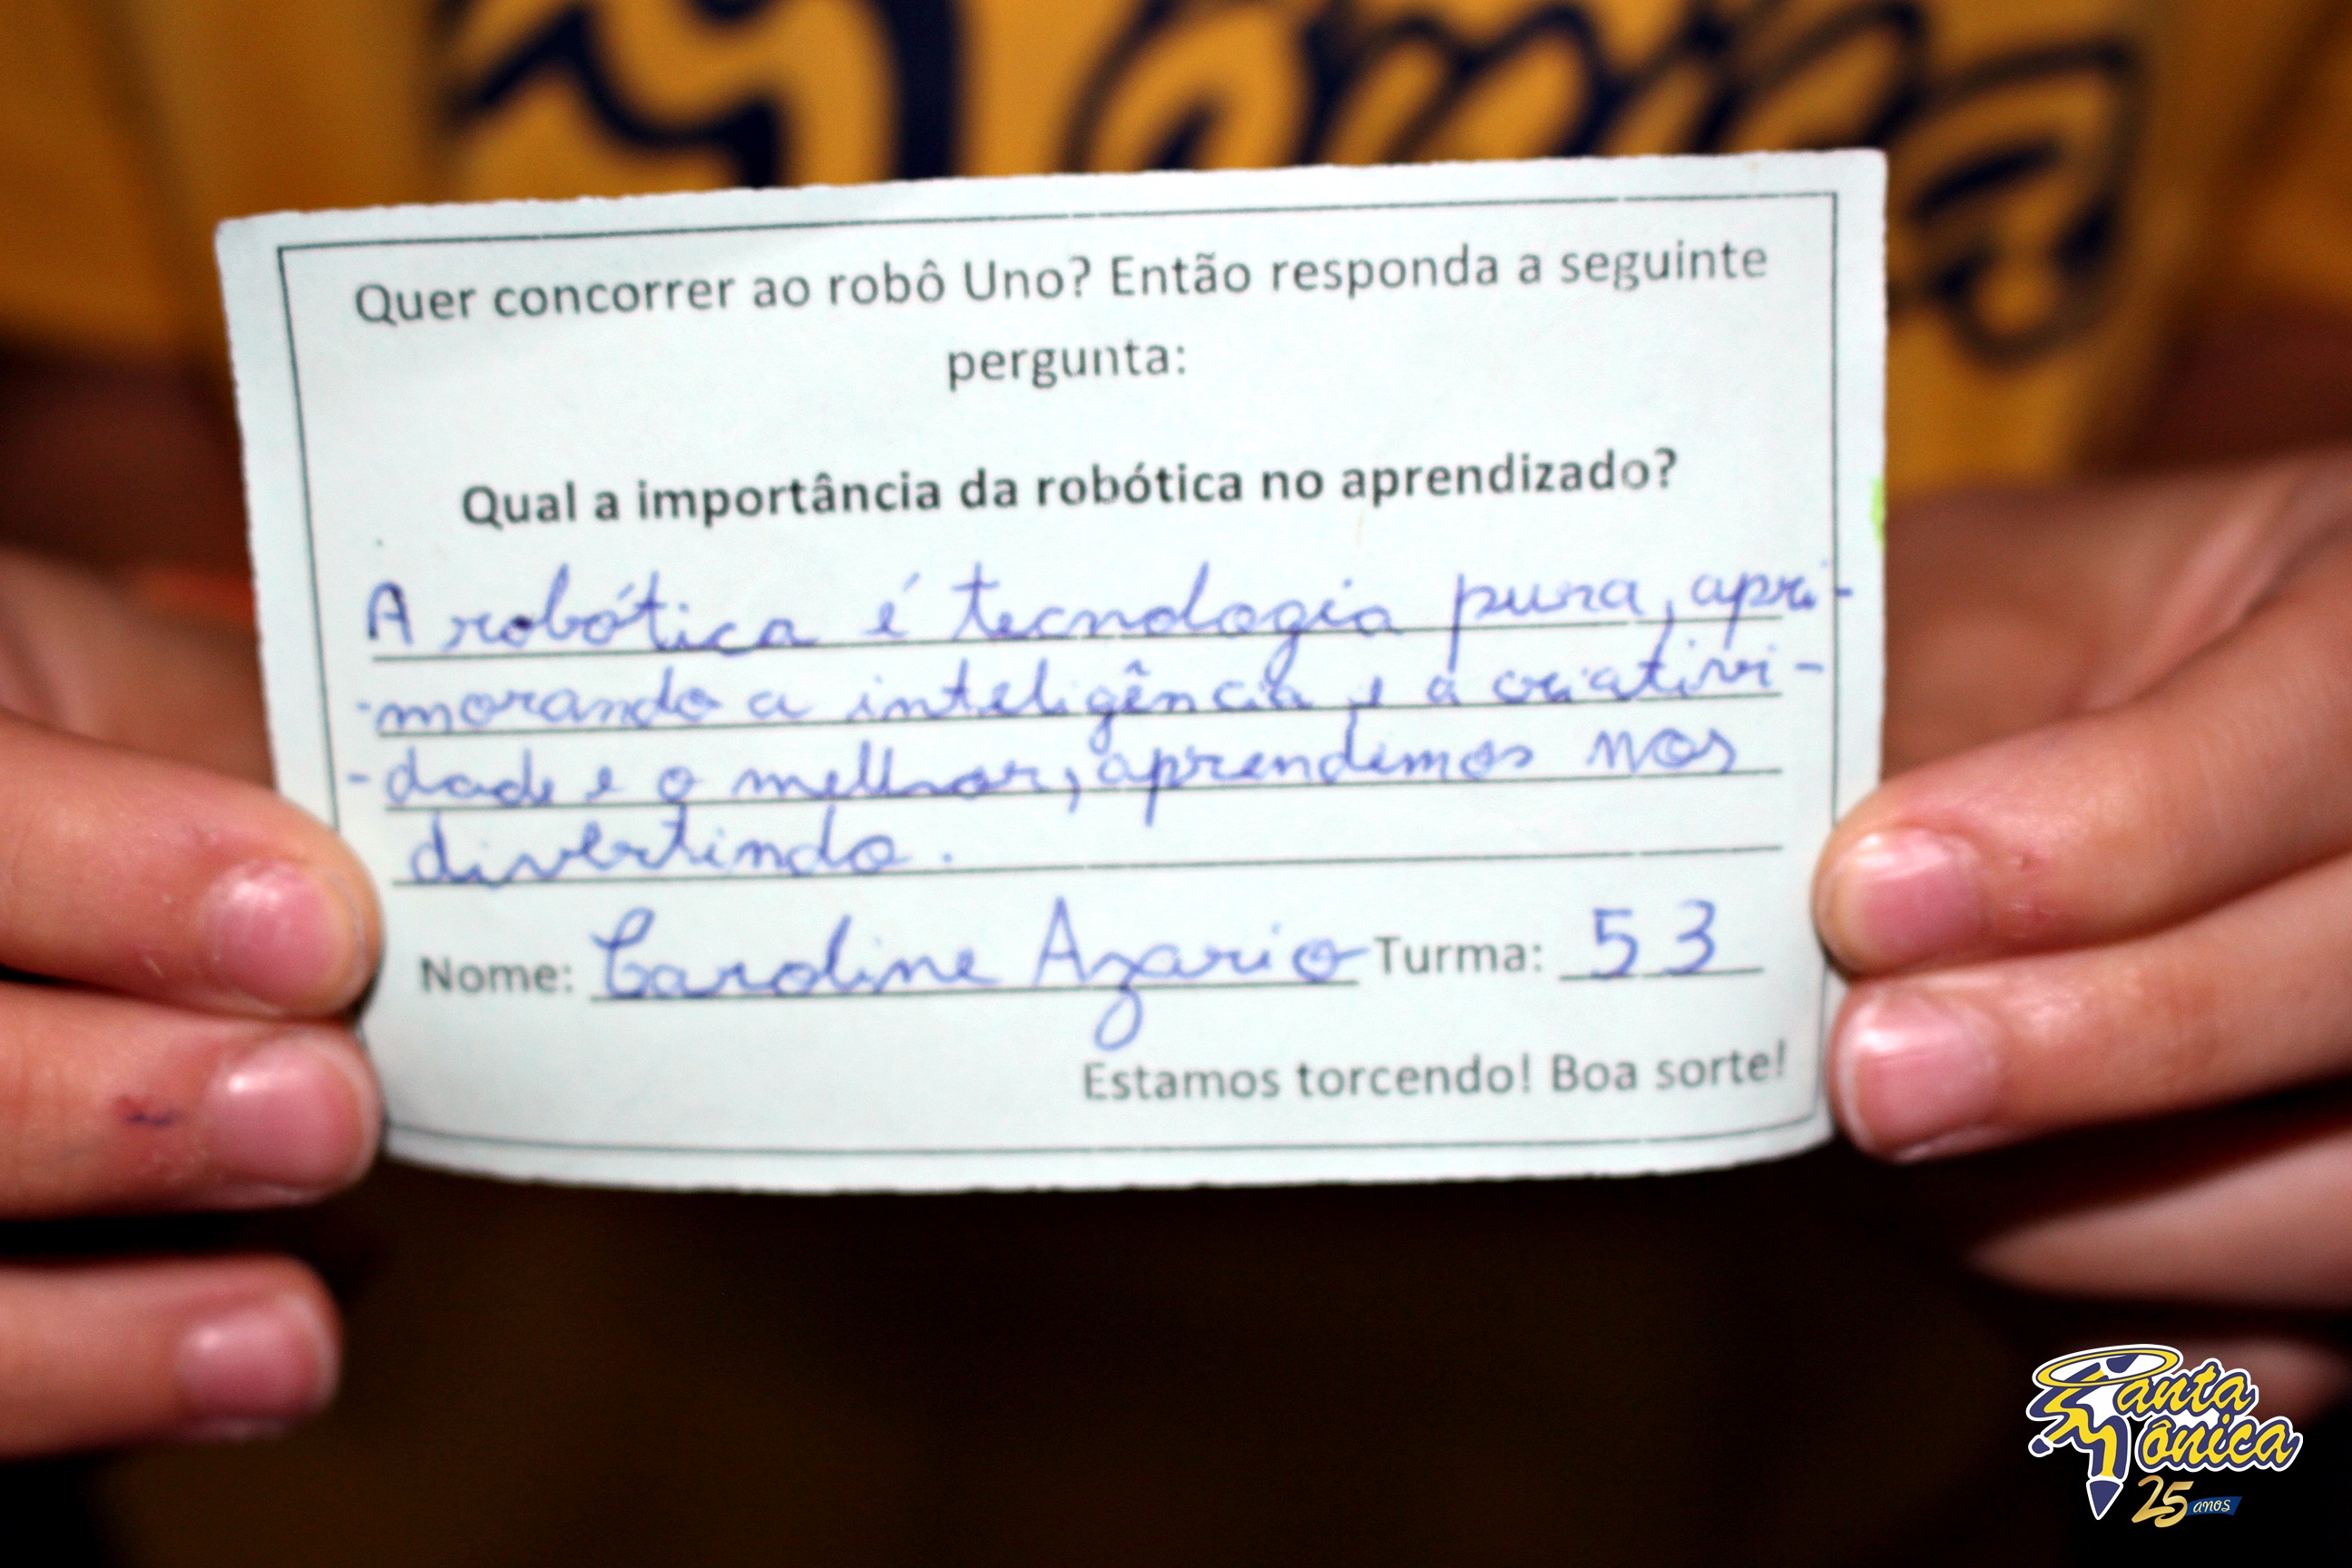 Quer concorrer ao robô Uno? Então responda a seguinte
pergunta:
Qual a importância da robótica no aprendizado?
A robótica é tecnologia pura, apri-
-morando a inteligência e a criativi-
-dade e o melhor, aprendemos nos
divertindo.
Nome: Caroline Azario Turma: 53
Estamos torcendo! Boa sorte!
Santa
Mônica
25 anos